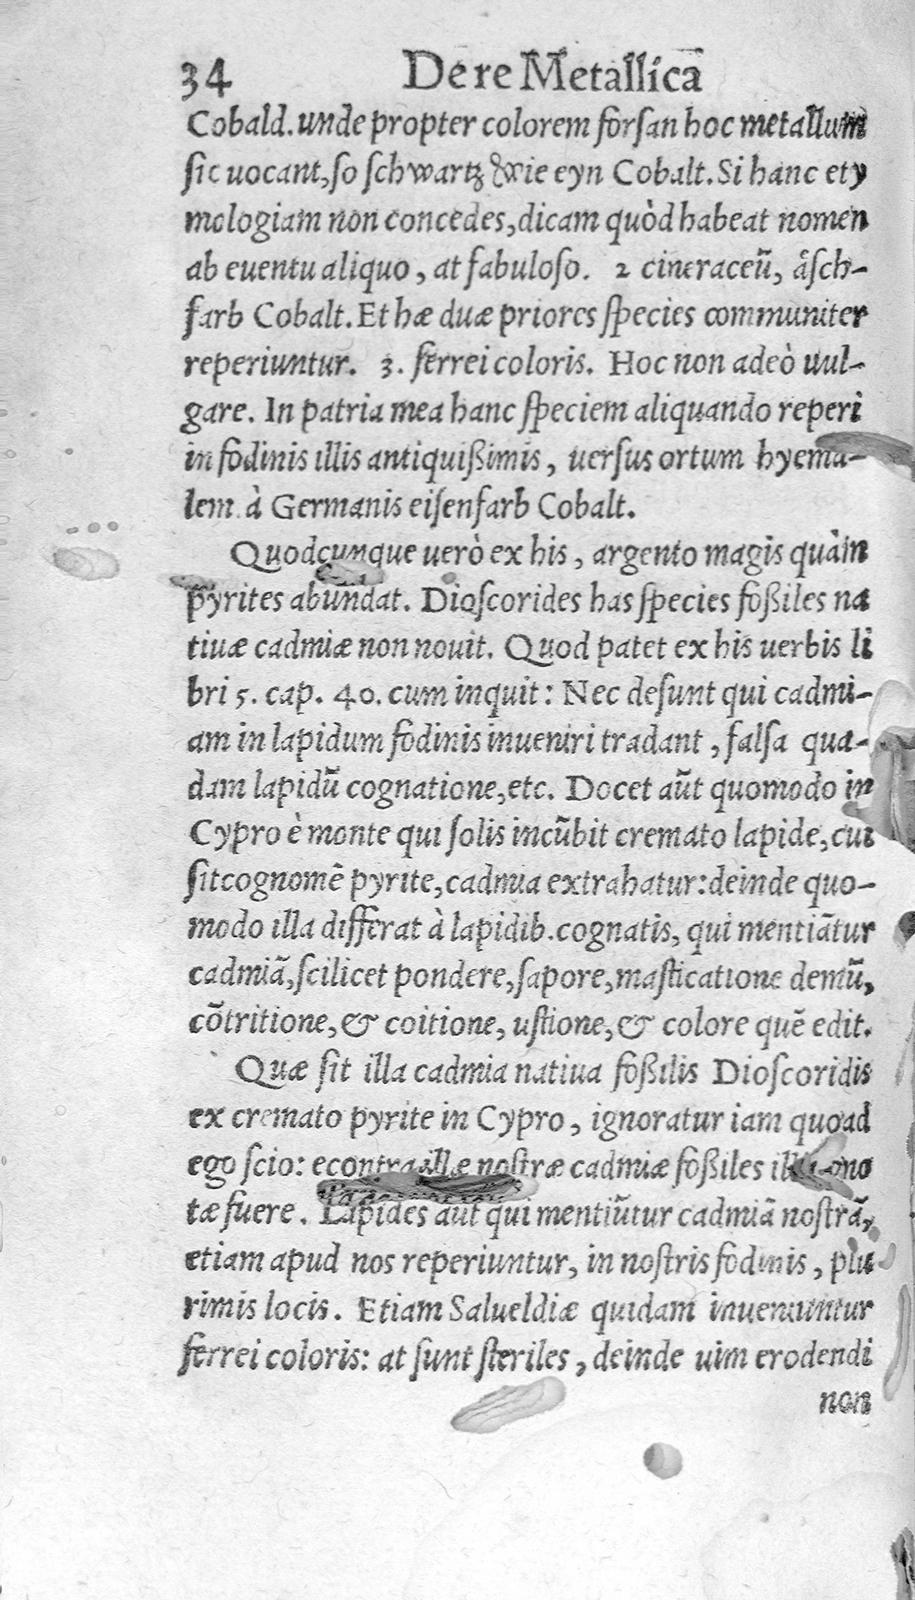 34 De re Metallica
Cobald. unde propter colorem forsan hoc metallum
sic uocant, so schwartz wie eyn Cobalt. Si hanc ety
mologiam non concedes, dicam quòd habeat nomen
ab euentu aliquo, at fabuloso. 2 cineraceũ, åsch-
farb Cobalt. Et hæ duæ priores species communiter
reperiuntur. 3. ferrei coloris. Hoc non adeò uul-
gare. In patria mea hanc speciem aliquando reperi
in fodinis illis antiquißimis, uersus ortum hyema-
lem à Germanis eisenfarb Cobalt.
Quodcunque uerò ex his, argento magis quàm
pyrites abundat. Dioscorides has species foßiles na
tiuæ cadmiæ non nouit. Quod patet ex his uerbis li
bri 5. cap. 40. cum inquit: Nec desunt qui cadmi-
am in lapidum fodinis inueniri tradant, falsa qua-
dam lapidũ cognatione, etc. Docet aũt quomodo in
Cypro è monte qui solis incũbit cremato lapide, cui
sit cognomẽ pyrite, cadmia extrahatur: deinde quo-
modo illa differat à lapidib. cognatis, qui mentiãtur
cadmiã, scilicet pondere, sapore, masticatione demũ,
cõtritione, & coitione, ustione, & colore quẽ edit.
Quæ sit illa cadmia natiua foßilis Dioscoridis
ex cremato pyrite in Cypro, ignoratur iam quoad
ego scio: econtra illæ nostræ cadmiæ foßiles illi igno
tæ fuere. Lapides aũt qui mentiũtur cadmiã nostrã,
etiam apud nos reperiuntur, in nostris fodinis, plu
rimis locis. Etiam Salueldiæ quidam inueniuntur
ferrei coloris: at sunt steriles, deinde uim erodendi
non